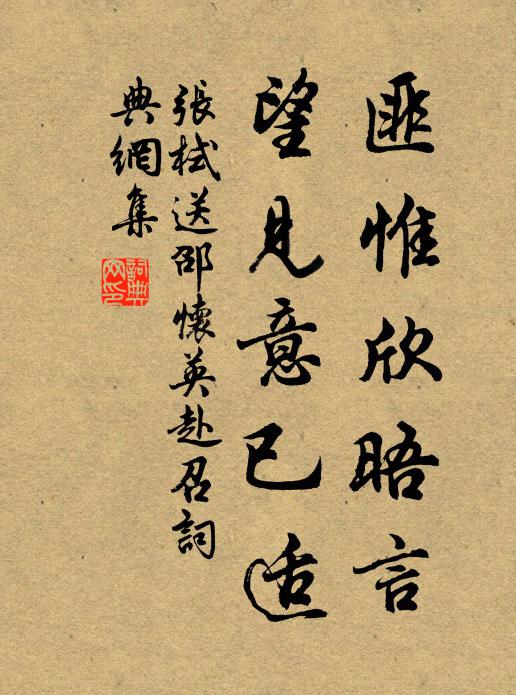 匪惟欣晤言
望见意已适
張栻送邵懷英赴召詞
典網集
詞典
网印